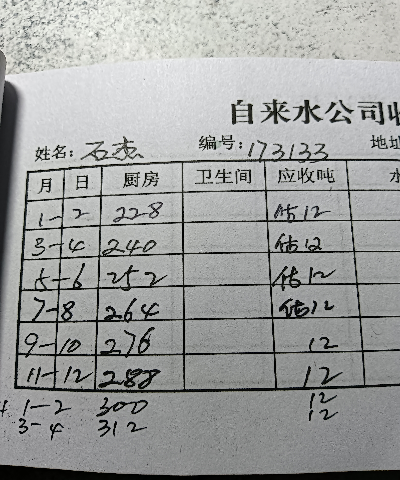 自来水公司收
姓名: 石杰 编号: 173133 地址
月 日 厨房 卫生间 应收吨 水
1-2 228 估12
3-4 240 估12
5-6 252 估12
7-8 264 估12
9-10 276 12
11-12 288 12
1-2 300 12
3-4 312 12